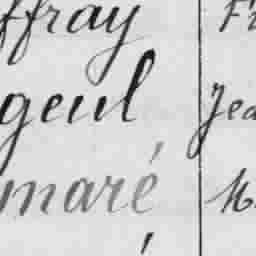 ffray Fr
geul Jea
maré M